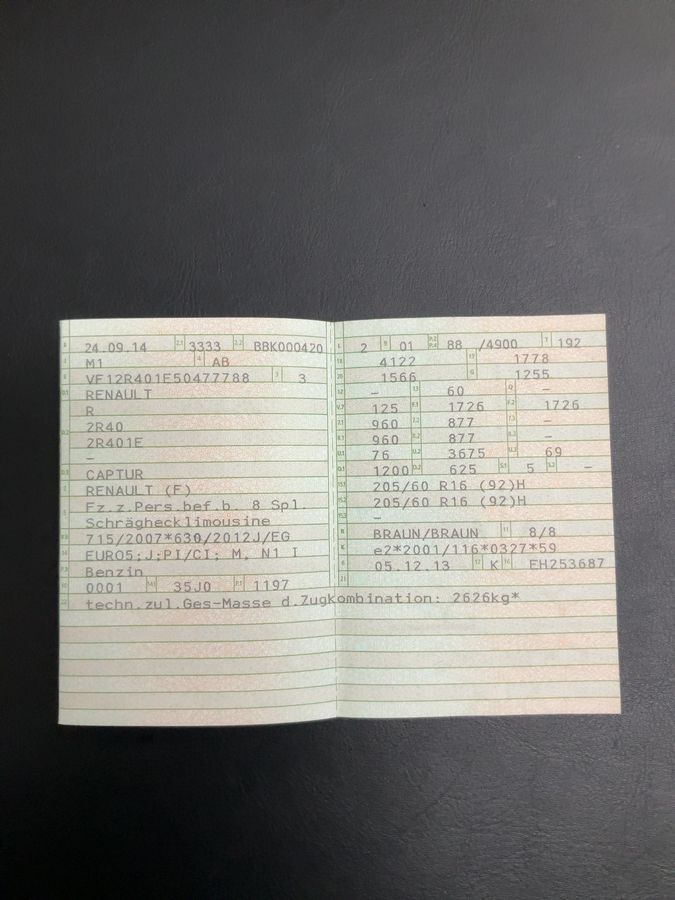 24.09.14 3333 BBK000420
M1 AB
VF12R401E50477788 3
RENAULT
R
2R40
2R401E
–
CAPTUR
RENAULT (F)
Fz.z.Pers.bef.b. 8 Spl.
Schräghecklimousine
715/2007*630/2012J/EG
EURO5;J;PI/CI; M, N1 I
Benzin
0001 35J0 1197
techn.zul.Ges-Masse d.Zugkombination: 2626kg*
2 01 88 /4900 192
4122 1778
1566 1255
– 60 –
125 1726 1726
960 877 –
960 877 –
76 3675 69
1200 625 5 –
205/60 R16 (92)H
205/60 R16 (92)H
–
BRAUN/BRAUN 8/8
e2*2001/116*0327*59
05.12.13 K EH253687